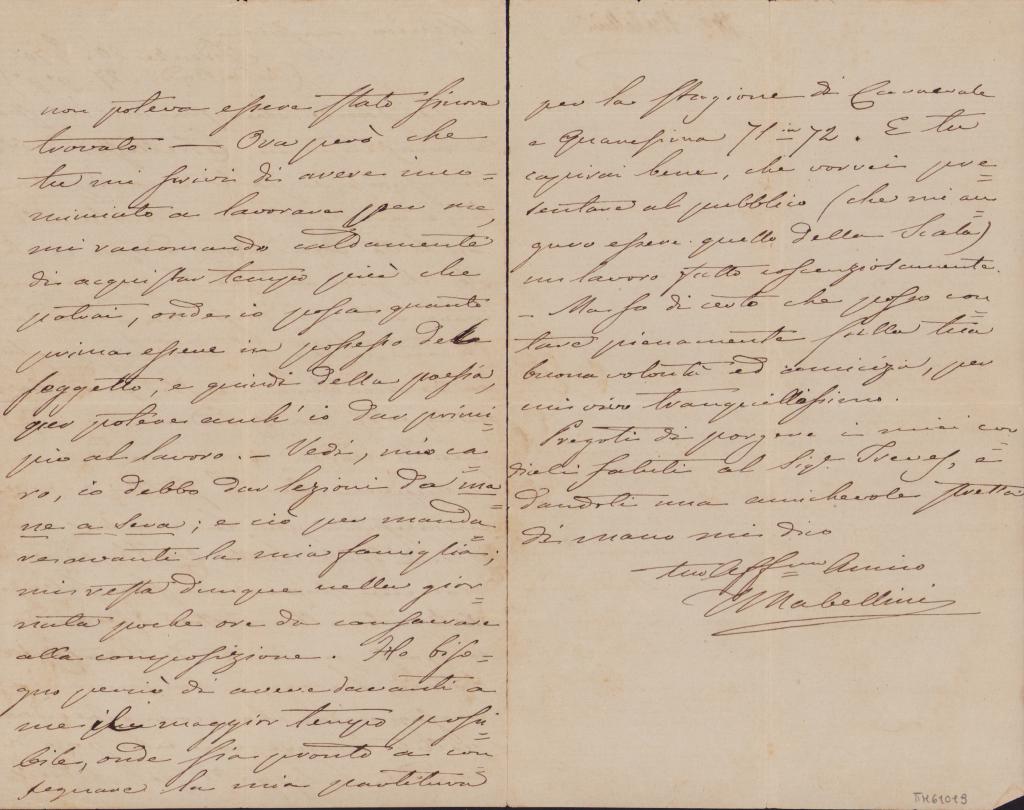 non poteva essere stato finora
trovato. — Ora però che
tu mi scrivi di avere inco=
minciato a lavorare per me,
mi raccomando caldamente
di acquistar tempo più che
potrai, onde io possa quanto
prima essere in possesso del
soggetto, e quindi della poesia,
per potere anch' io dar princi=
pio al lavoro. — Vedi, mio ca=
ro, io debbo dar lezioni da ma=
ne a sera; e ciò per manda=
re avanti la mia famiglia;
mi resta dunque nella gior=
nata poche ore da consacrare
alla composizione. Ho biso=
gno perciò di avere davanti a
me il maggior tempo possi=
bile, onde sia pronto a con=
segnare la mia partitura
per la stagione di Carnevale
e Quaresima 71 in 72. E tu
capirai bene, che vorrei pre=
sentare al pubblico (che mi au=
guro essere quello della Scala)
un lavoro fatto coscenziosamente.
— Ma so di certo che posso con=
tare pienamente sulla tua
buona volontà ed amicizia, per
mi vivo tranquillissimo.
Pregoti di porgere i miei cor=
diali saluti al Sigr Treves, e
dandoti una amichevole stretta
di mano mi dico
tuo Affmo Amico
Mabellini
TH61019